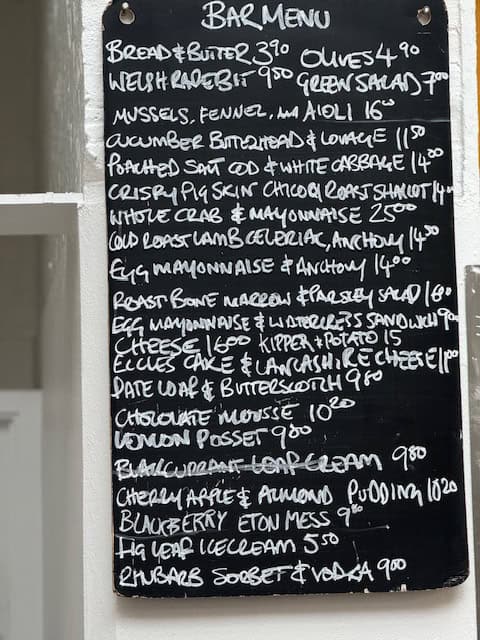 BAR MENU
BREAD & BUTTER 3⁹⁰ OLIVES 4⁹⁰
WELSH RAREBIT 9⁵⁰ GREEN SALAD 7⁰⁰
MUSSELS, FENNEL, AND AIOLI 16⁰⁰
CUCUMBER BUTTERHEAD & LOVAGE 11⁵⁰
POACHED SALT COD & WHITE CABBAGE 14⁰⁰
CRISPY PIG SKIN CHICORY ROAST SHALLOT 14⁰⁰
WHOLE CRAB & MAYONNAISE 25⁰⁰
COLD ROAST LAMB CELERIAC, ANCHOVY 14⁵⁰
EGG MAYONNAISE & ANCHOVY 14⁰⁰
ROAST BONE MARROW & PARSLEY SALAD 16⁰⁰
EGG MAYONNAISE & WATERCRESS SANDWICH
CHEESE 16⁰⁰ KIPPER & POTATO 15
ECCLES CAKE & LANCASHIRE CHEESE 11⁰⁰
DATE LOAF & BUTTERSCOTCH
CHOCOLATE MOUSSE 10²⁰
LEMON POSSET
BLACKCURRANT LEAF CREAM 9⁸⁰
CHERRY APPLE & ALMOND PUDDING 10²⁰
BLACKBERRY ETON MESS 9⁸⁰
FIG LEAF ICECREAM 5⁵⁰
RHUBARB SORBET & VODKA 9⁰⁰